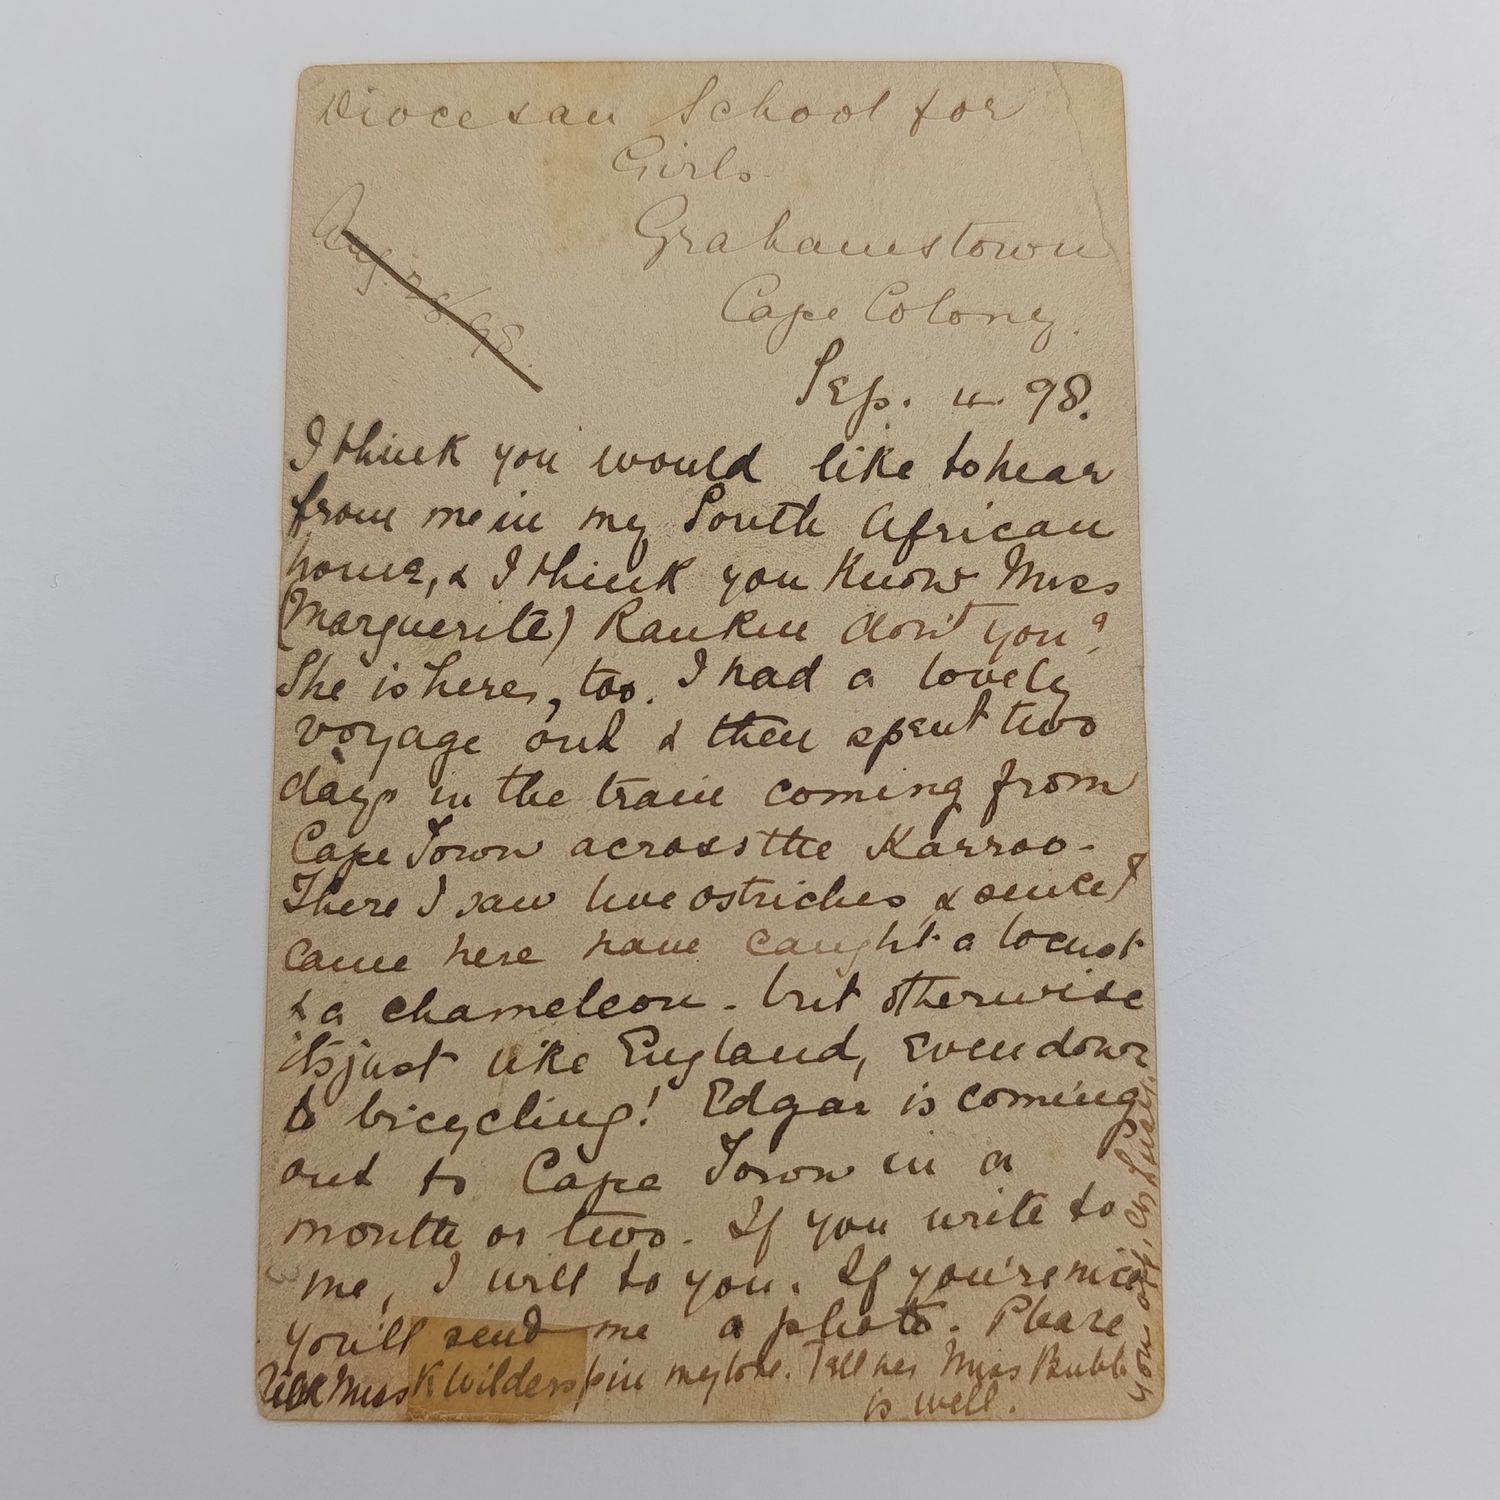 Diocesan School for
Girls.
Grahamstown
Cape Colony.
Aug. 28/98.
Sep. 4. 98.
I think you would like to hear
from me in my South African
home, & I think you know Miss
(Marguerite) Rankin don't you?
She is here, too. I had a lovely
voyage out & then spent two
days in the train coming from
Cape Town across the Karroo-
There I saw live ostriches & since I
came here have caught a locust
& a chameleon - but otherwise
its just like England, even down
to bicycling! Edgar is coming
out to Cape Town in a
month or two. If you write to
me, I will to you. If you're nice
you'll send me a photo. Please
Miss K Wilderspin my love. Tell her Miss Bubb
is well.